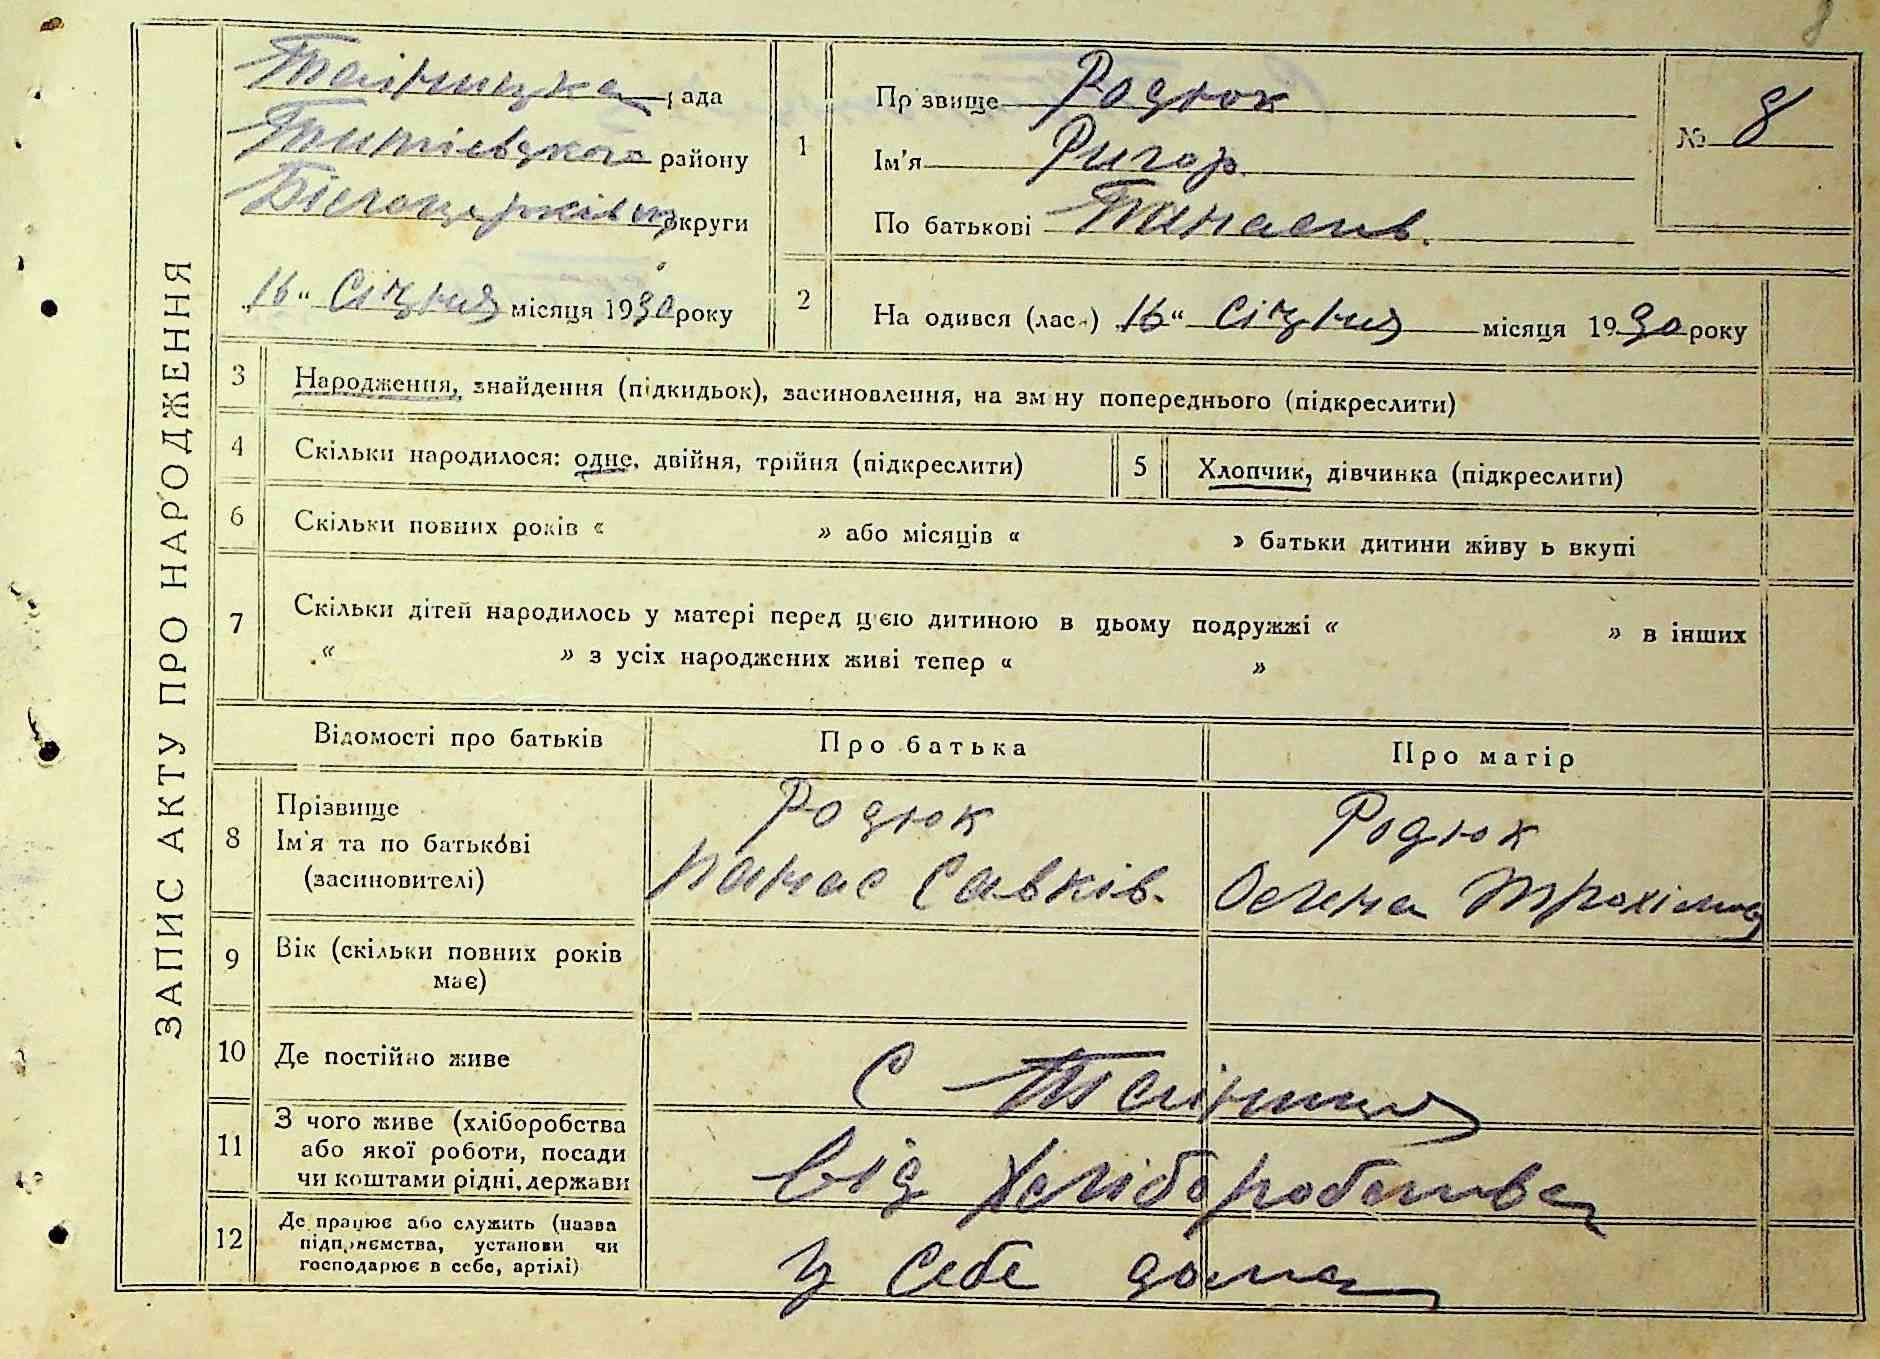 8
ЗАПИС АКТУ ПРО НАРОДЖЕННЯ
Тайницька рада
Титіевського району
Білоцерківськ округи
16 " Січня місяця 1930 року
1
Прізвище Родюк
Ім'я Ригор.
По батькові Танасів.
№ 8
2
На одився (лас.) 16 " Січня місяця 1930 року
3 Народження, знайдення (підкидьок), засиновлення, на зміну попереднього (підкреслити)
4 Скільки народилося: одне, двійня, трійня (підкреслити) 5 Хлопчик, дівчинка (підкреслити)
6 Скільки повних років « » або місяців « » батьки дитини живуть вкупі
7 Скільки дітей народилось у матері перед цією дитиною в цьому подружжі « » в інших
« » з усіх народжених живі тепер « »
Відомості про батьків Про батька Про матір
8 Прізвище
Ім'я та по батькові
(засиновителі)
Родюк
Панас Савків.
Родюк
Трохімова
9 Вік (скільки повних років
має)
10 Де постійно живе С Тайниця
11 З чого живе (хліборобства
або якої роботи, посади
чи коштами рідні, держави
від Хліборобства
12 Де працює або служить (назва
підприємства, установи чи
господарює в себе, артілі)
У себе дома